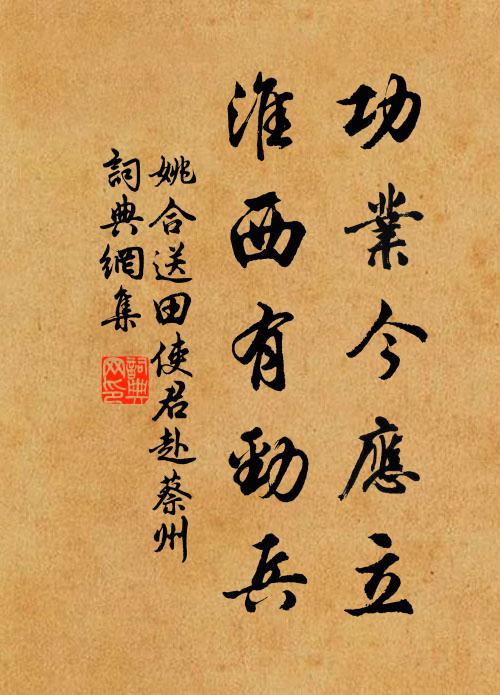 功業今應立
淮西有勁兵
姚合送田使君赴蔡州
詞典網集
詞典網印